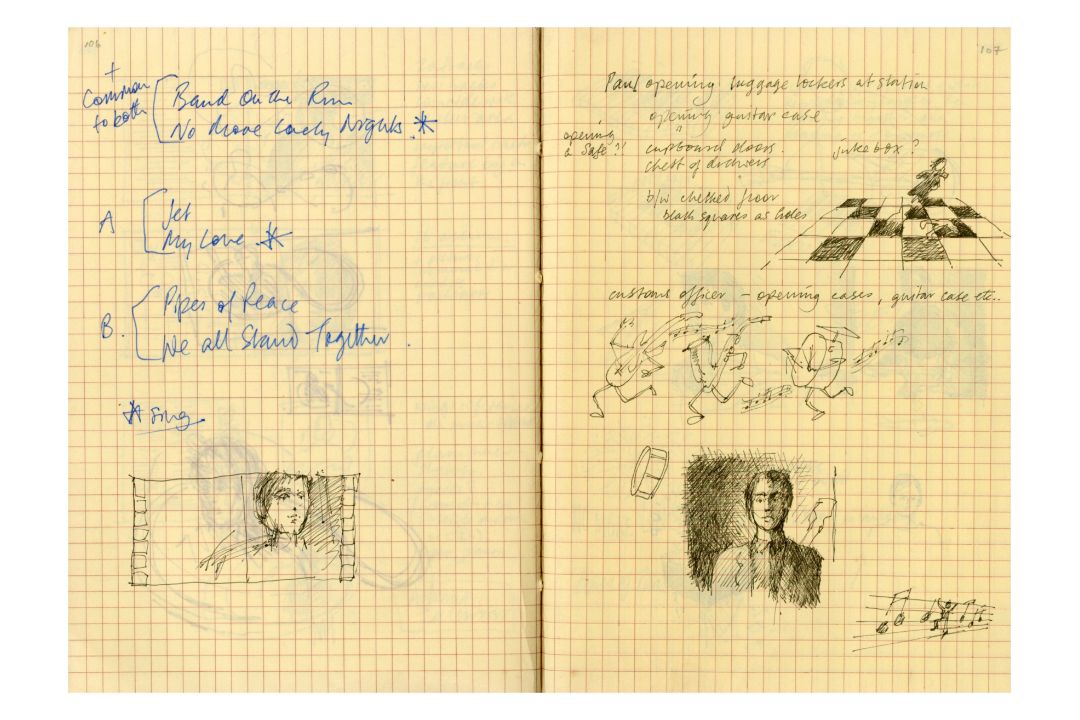 106
+
Common
to both
Band On the Run
No More Lonely Nights *
A
Jet
My Love *
B.
Pipes of Peace
We all Stand Together.
* Sing
107
Paul opening luggage lockers at station
opening guitar case
opening
a safe?!
cupboard doors.
chest of drawers
jukebox?
b/w checked floor
black squares as holes
customs officer – opening cases, guitar case etc..